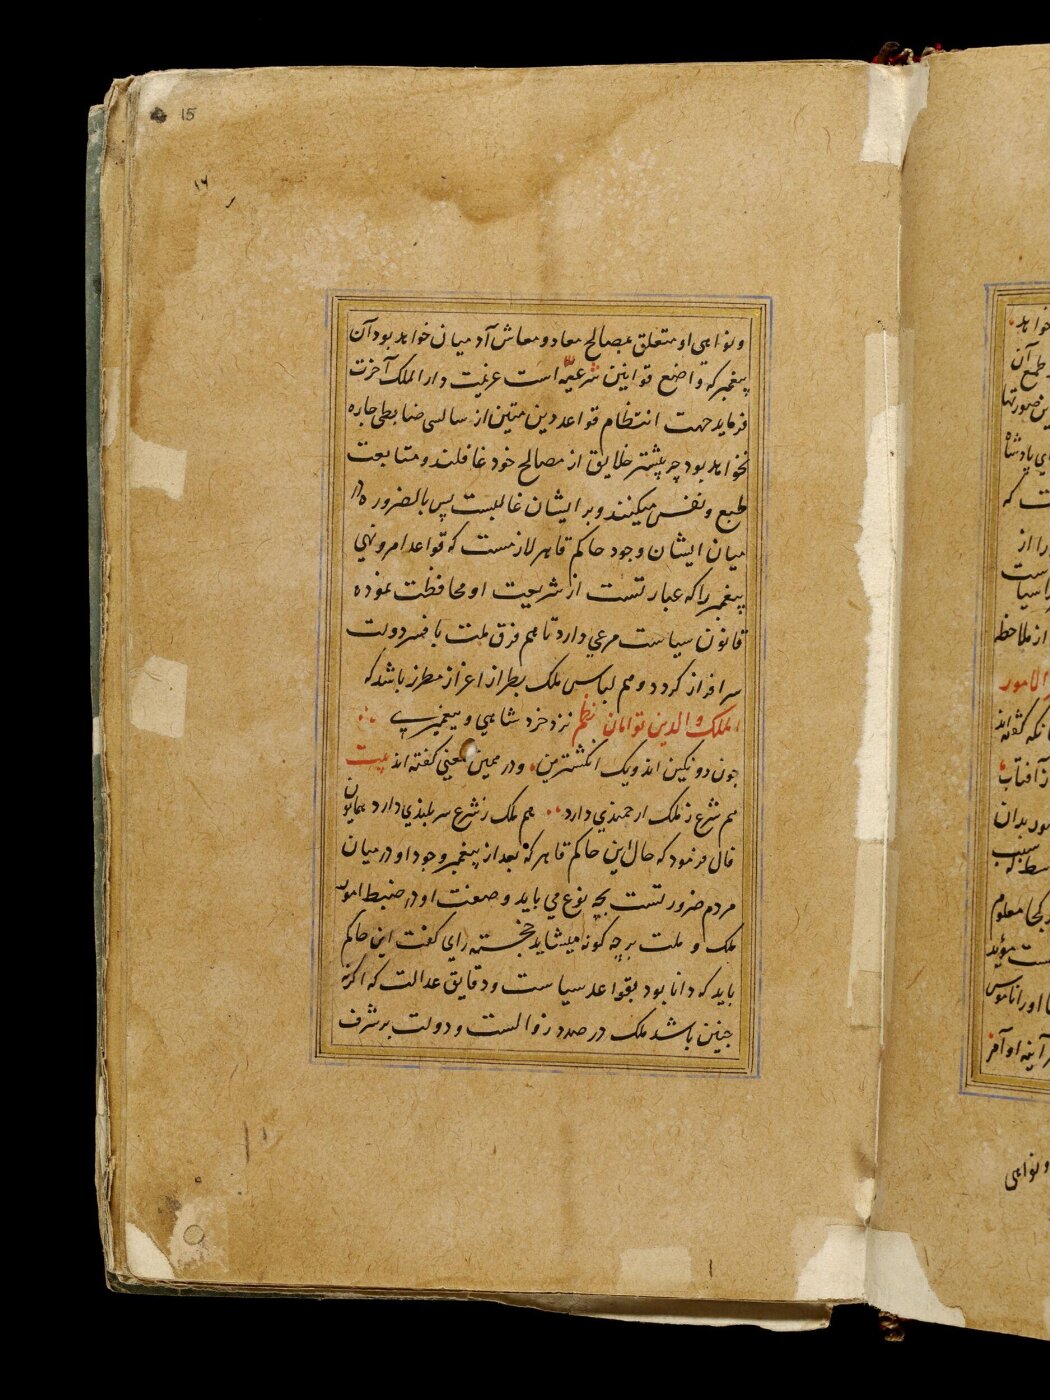 15
۱۶
ونواهی او متعلق بمصالح معاد و معاش آدمیان خواهد بود آن
پیغمبر که واضع قوانین شرعیّه است عزیمت دار الملک آخرت
فرماید جهت انتظام قواعد دین متین از سالسی ضابطی چاره
نخواهد بود چه بیشتر خلایق از مصالح خود غافلند و متابعت
طبع و نفس میکنند و بر ایشان غالبست پس بالضروره در
میان ایشان وجود حاکم قاهر لازمست که قواعد امر و نهی
پیغمبر را که عبارتست از شریعت او محافظت نموده
قانون سیاست مرعی دارد تا هم فرق ملت بافسر دولت
سرافراز کردد و هم لباس ملک بطراز اعزاز مطرز باشد که
الملک و الدین توامان نظم نزد خرد شاهی و پیغمبری
چون دو نکین اند و یک انکشترین و در همین معنی کفته اند بیت
هم شرع ز ملک ارجمندی دارد هم ملک ز شرع سربلندی دارد همایون
فال فرمود که حال این حاکم قاهر که بعد از پیغمبر وجود او در میان
مردم ضرورتست بچه نوع می باید و صفت او در ضبط امور
ملک و ملت بر چه کونه میشاید خجسته رای کفت این حاکم
باید که دانا بود بقواعد سیاست و دقایق عدالت که اکر نه
چنین باشد ملک در صدد زوالست و دولت بر شرف
خواهد
طمع آن
ین صورتها
ای پادشاه
ت که
را از
است
سیا
از ملاحظه
الامور
نکه کفته اند
از آفتاب
مور بدان
سبب
کجا معلوم
ست مؤید
ا او را ناموس
ر آینه او آمر
ونواهی